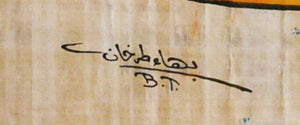 بهاء طرخان
B.T.